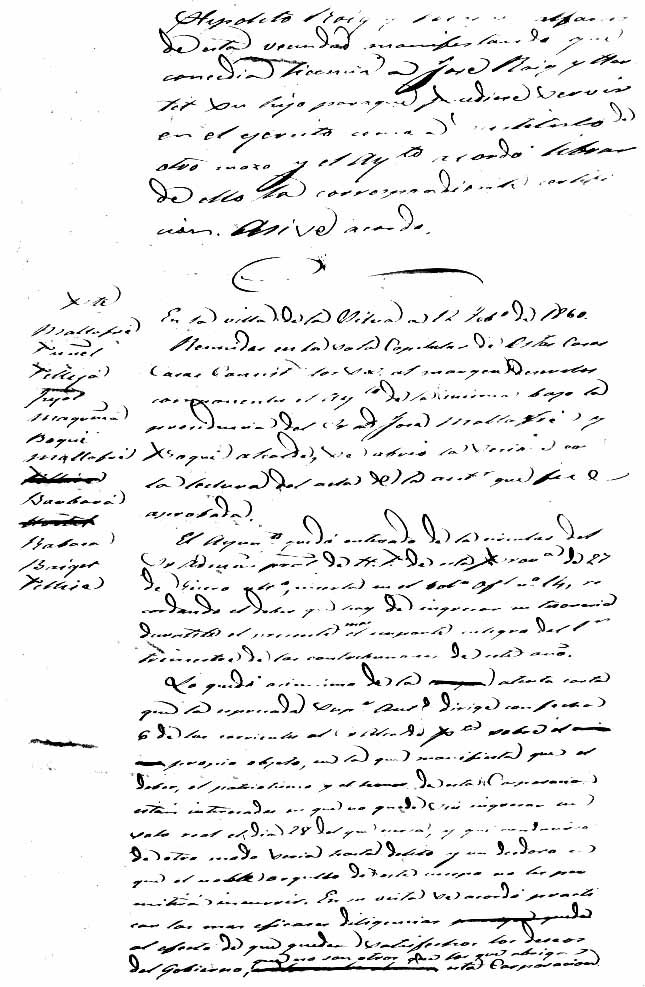 Hipolito Roig y
de esta vecindad manifestando que
concedia licencia a José Roig y
su hijo paraque pudiese servir
en el ejercito como a sustituto de
otro mozo y el Ayto acordó librar
de ello la correspondiente certifi
cion. Asi se acordo.
Mallafré
Tuñel
Pellejá
Maymus
Boqué
Mallafré
Barbará
Babara
Briget
Pellisa
En la villa de la Selva a 12 Febo de 1860.
Reunidos en la sala Capitular de Estas Casas
Casas Consist los Sres al margen
componentes el Ayto de la misma bajo la
presidencia del José Mallafré y
alcalde, se abrio la sesion con
la lectura del acta de la antr que fue
aprobada.
El Ayunto quedó enterado de la circular del
de H. P. de esta Prova de 27
de Enero inserta en el Bolo Ofl no 14, re
cordando el deber que hay de ingresar en tesoreria
durante el presente mes el importe integro del 1er
trimestre de las contribuciones de este año.
Lo quedó asimismo de la atenta carta
que la espresada Supr Autd dirige con fecha
6 de los corrientes al Alcalde Pte sobre el
propio objeto, en la que manifiesta que el
deber, el patriotismo y el honor de esta Corporacion
estan interesados en que no quede sin ingresar un
solo real el dia 28 del que cursa, y que
de otro modo seria hasta delito y un desdoro en
que el noble orgullo de este cuerpo no les per
mitirá incurrir. En su vista se acordó practi
car las mas eficaces diligencias
al efecto de que queden satisfechos los deseos
del Gobierno, que no son otros que los que abriga esta Corporacion